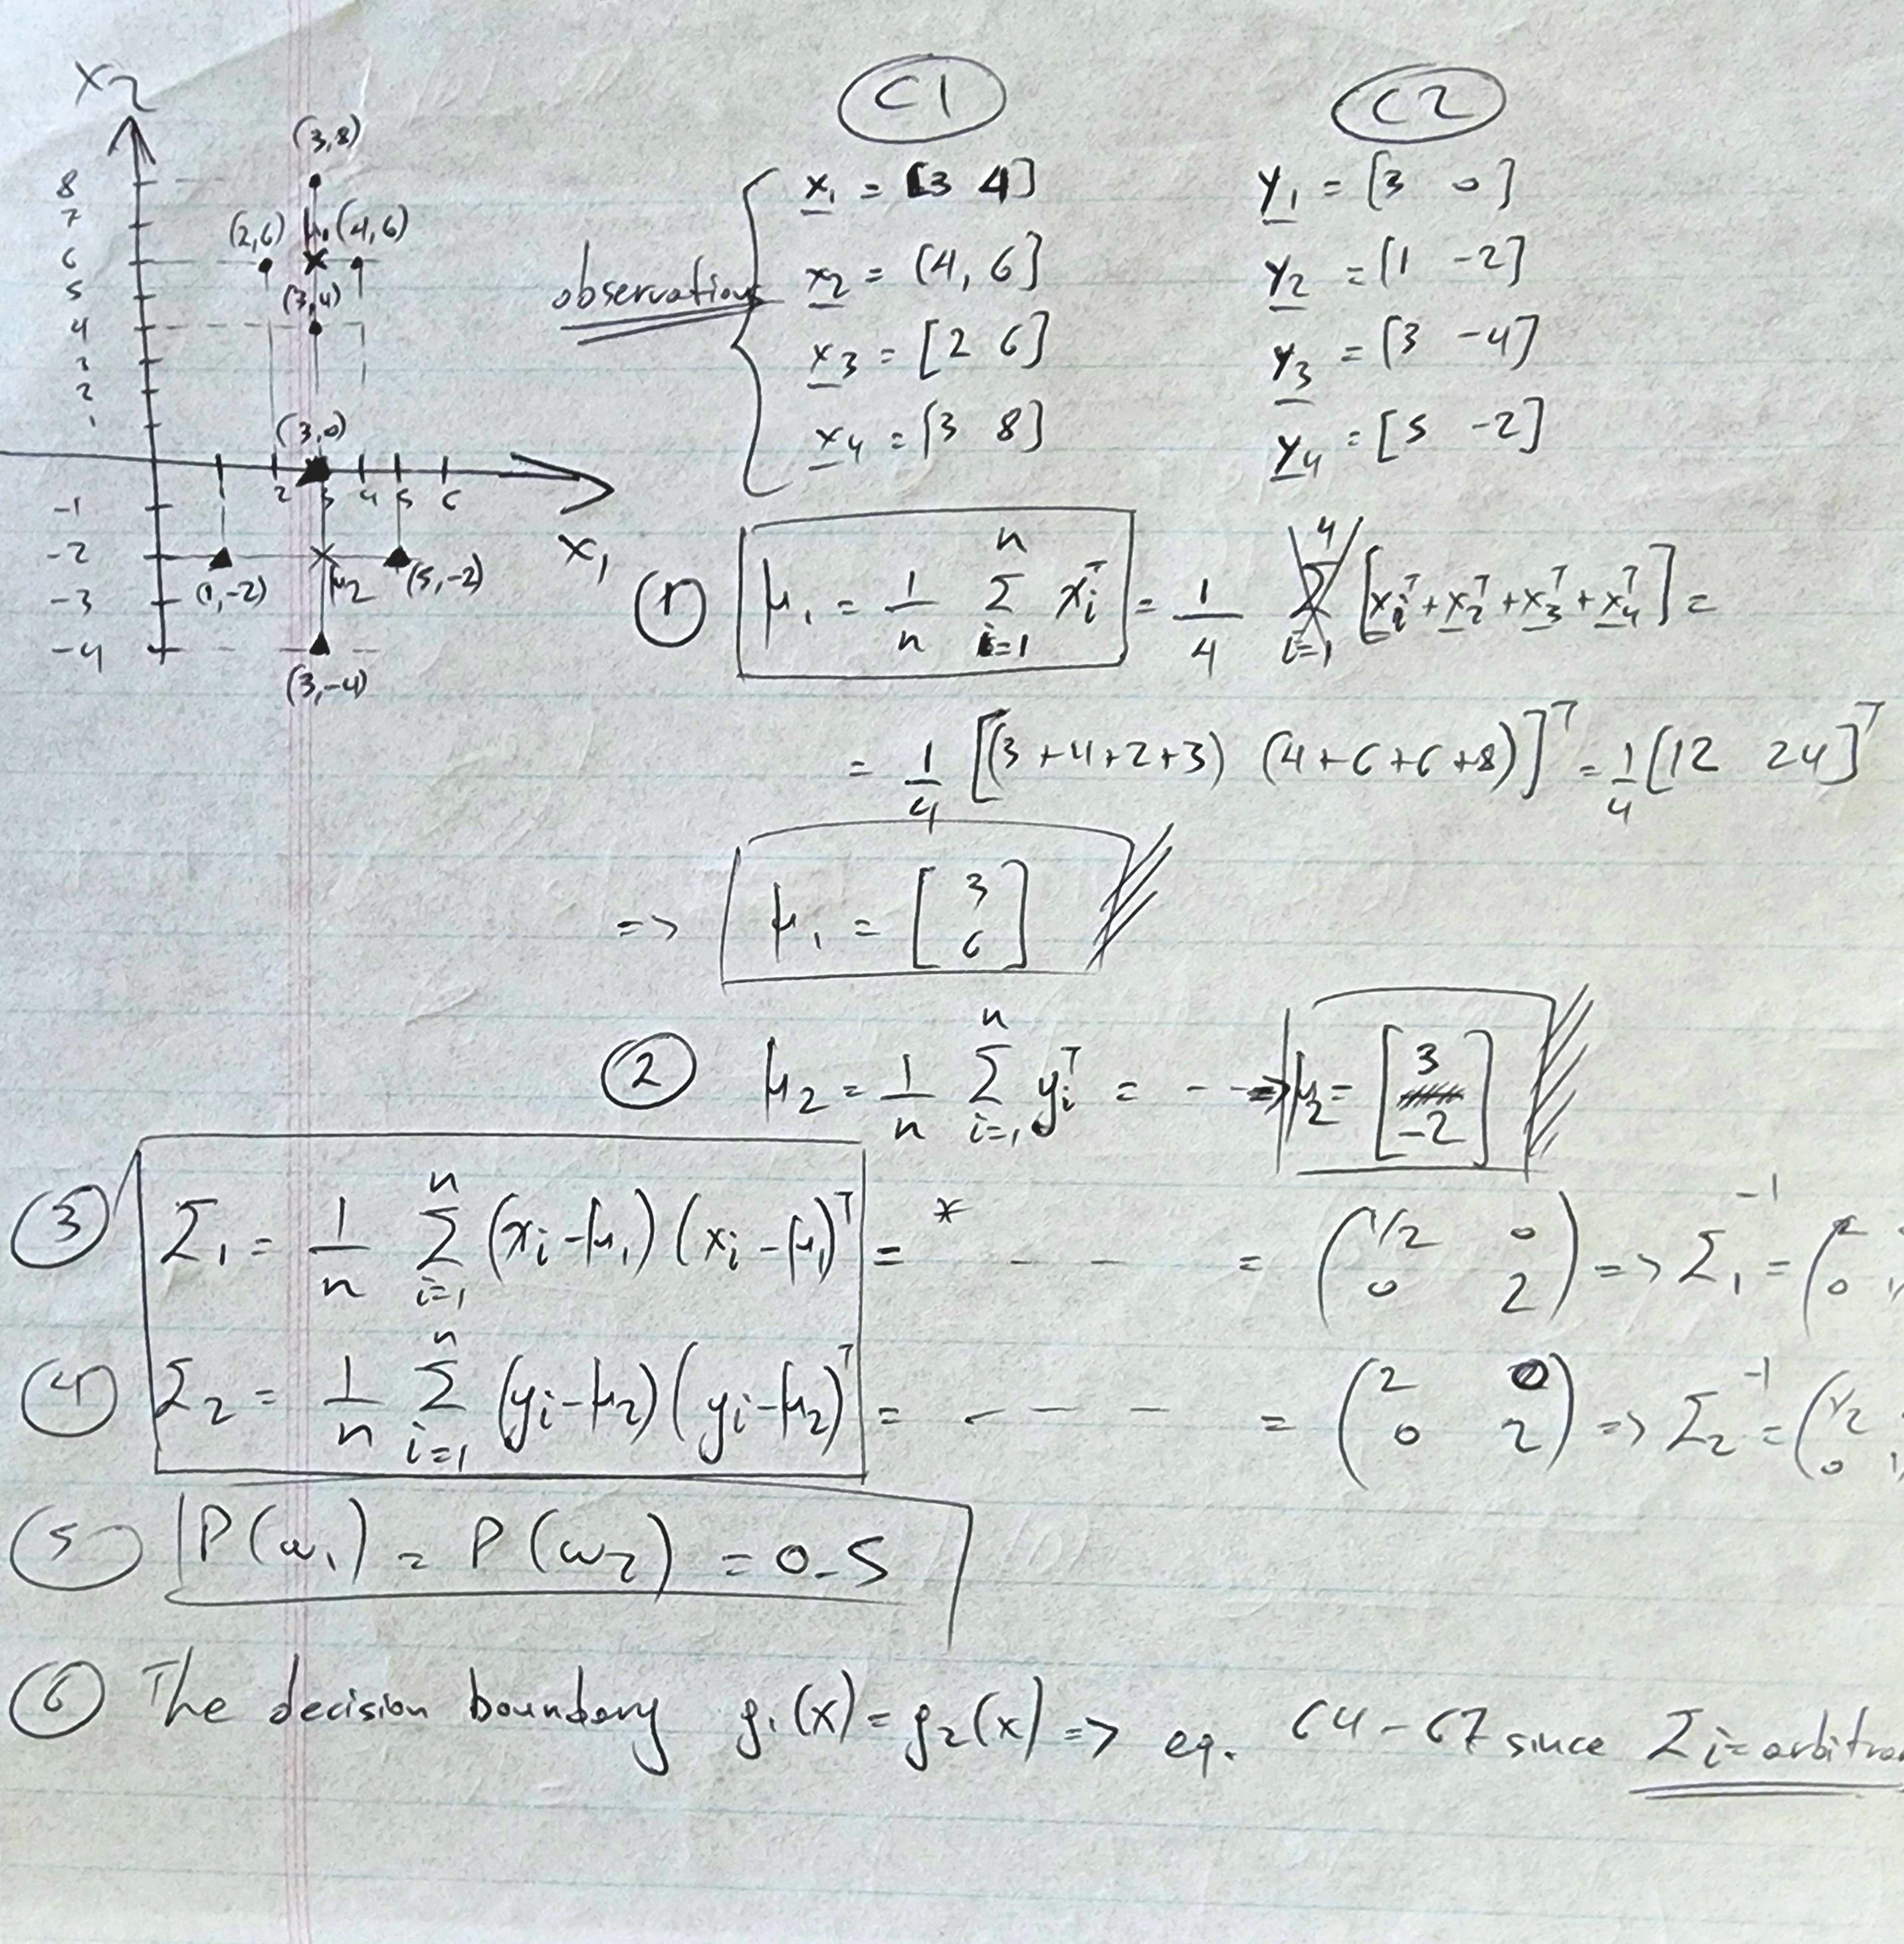 x2
(3,8)
8
7
(2,6) μ1 (4,6)
6
5
(3,4)
4
3
2
1
(3,0)
2 3 4 5 6
x1
-1
-2
(1,-2) μ2 (5,-2)
-3
-4
(3,-4)
C1 C2
observations
x1 = [3 4] y1 = [3 0]
x2 = (4, 6] y2 = [1 -2]
x3 = [2 6] y3 = [3 -4]
x4 = [3 8] y4 = [5 -2]
① μ1 = 1/n Σ_{i=1}^{n} xi^T = 1/4 Σ_{i=1}^{4} [x1^T + x2^T + x3^T + x4^T] =
= 1/4 [(3+4+2+3) (4+6+6+8)]^T = 1/4 [12 24]^T
=> μ1 = [3 6]
② μ2 = 1/n Σ_{i=1}^{n} yi^T = - - => μ2 = [3 -2]
③ Σ1 = 1/n Σ_{i=1}^{n} (xi - μ1)(xi - μ1)^T = * - - = (1/2 0 0 2) => Σ1^-1 = (2 0
④ Σ2 = 1/n Σ_{i=1}^{n} (yi - μ2)(yi - μ2)^T = - - - = (2 0 0 2) => Σ2^-1 = (1/2 0
⑤ P(ω1) = P(ω2) = 0.5
⑥ The decision boundary g1(x) = g2(x) => eq. 64-67 since Σi = arbitra